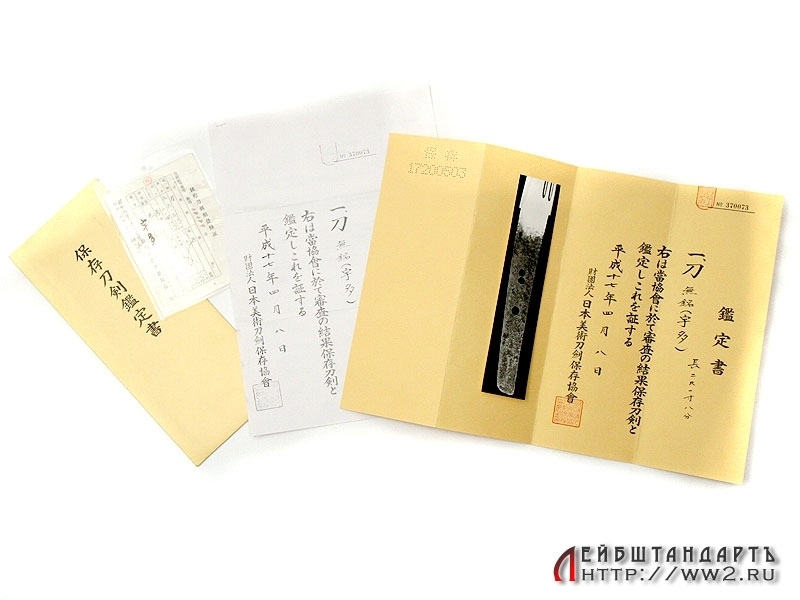 保存刀剣鑑定書
宇多
No 370073
一、刀 無銘(宇多)
右は當協會に於て審査の結果保存刀剣と
鑑定しこれを証する
平成十七年四月八日
財團法人日本美術刀剣保存協會
保存
17200503
No 370073
鑑定書
一、刀 無銘(宇多) 長二尺一寸八分
右は當協會に於て審査の結果保存刀剣と
鑑定しこれを証する
平成十七年四月八日
財團法人日本美術刀剣保存協會
ЛЕЙБШТАНДАРТЪ
HTTP://WW2.RU